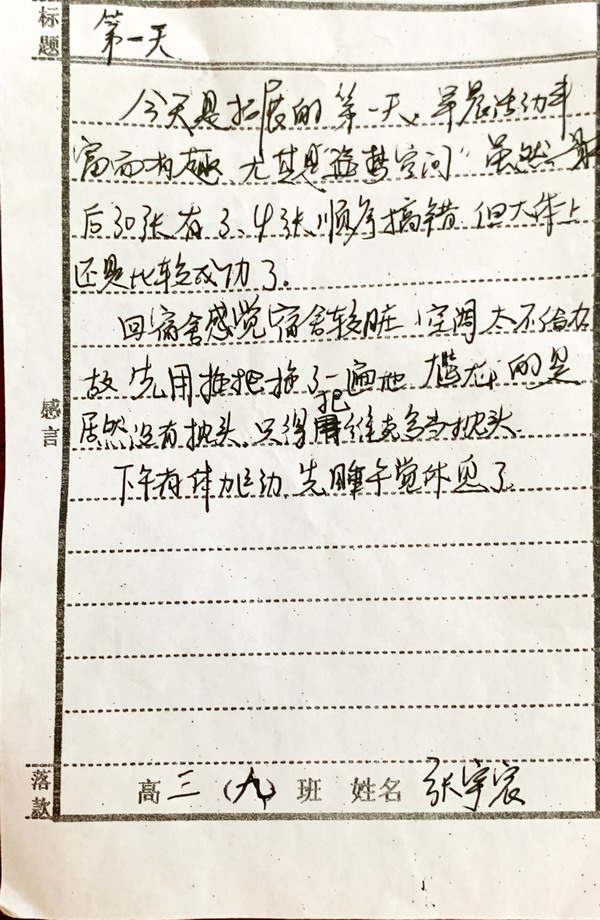 标题
第一天
今天是拓展的第一天,早晨活动丰
富而有趣,尤其是盗梦空间",虽然最
后30张有3、4张顺序搞错,但大体上
还是比较成功了。
回宿舍感觉宿舍较脏,空调太不给力
故先用拖把拖了一遍地,尴尬的是
居然没有枕头,只得把维克多当枕头.
下午有体力运动,先睡午觉休见了.
感言
落款
高三(九)班 姓名 张宇宸